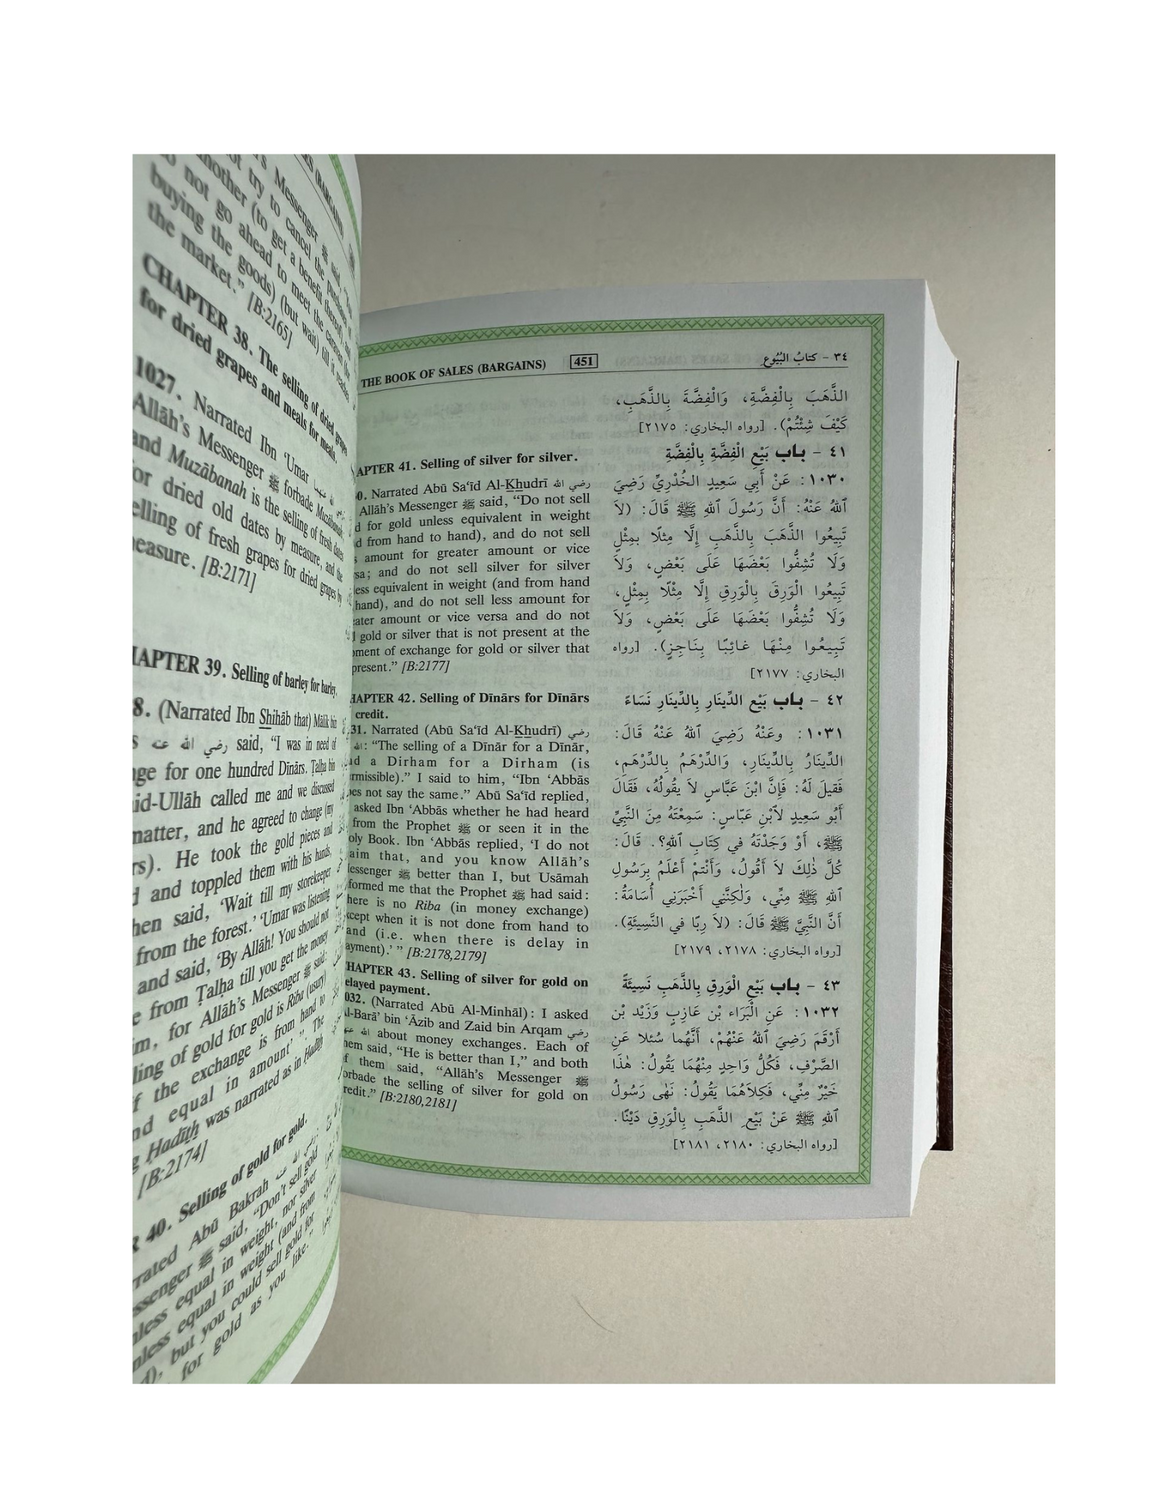 Messenger ﷺ said,
try to cancel the
another (to get a benefit
not go ahead to meet the
buying the goods) (but wait) till it
the market." [B:2165]
CHAPTER 38. The selling of dried grapes
for dried grapes and meals for meals.
1027. Narrated Ibn 'Umar
Allāh's Messenger ﷺ forbade
and Muzābanah is the selling of fresh dates
for dried old dates by measure, and the
selling of fresh grapes for dried grapes by
measure. [B:2171]
HAPTER 39. Selling of barley for barley.
8. (Narrated Ibn Shihāb that) Mālik bin
رضي الله عنه said, "I was in need of
ge for one hundred Dīnārs. Ṭalḥa bin
id-Ullāh called me and we discussed
matter, and he agreed to change (my
rs). He took the gold pieces and
and toppled them with his hands,
hen said, 'Wait till my storekeeper
from the forest.' 'Umar was listening
and said, 'By Allāh! You should not
e from Ṭalḥa till you get the money
m, for Allāh's Messenger ﷺ said:
ling of gold for gold is Riba (usury)
f the exchange is from hand to
nd equal in amount' " The
g Ḥadīth was narrated as in Ḥadīth
[B:2174]
40. Selling of gold for gold.
rrated Abū Bakrah رضي الله عنه
ssenger ﷺ said, "Don't sell gold
nless equal in weight, nor silver
nless equal in weight (and from
d), but you could sell gold for
for gold as you like."
THE BOOK OF SALES (BARGAINS) 451 ٣٤ - كتابُ البُيُوع
APTER 41. Selling of silver for silver.
0. Narrated Abū Sa'īd Al-Khudrī رضي الله
Allāh's Messenger ﷺ said, "Do not sell
d for gold unless equivalent in weight
d from hand to hand), and do not sell
s amount for greater amount or vice
sa; and do not sell silver for silver
ess equivalent in weight (and from hand
hand), and do not sell less amount for
eater amount or vice versa and do not
l gold or silver that is not present at the
ment of exchange for gold or silver that
present." [B:2177]
HAPTER 42. Selling of Dīnārs for Dīnārs
credit.
31. Narrated (Abū Sa'īd Al-Khudrī) رضي
: "The selling of a Dīnār for a Dīnār,
d a Dirham for a Dirham (is
rmissible)." I said to him, "Ibn 'Abbās
oes not say the same." Abū Sa'īd replied,
asked Ibn 'Abbās whether he had heard
from the Prophet ﷺ or seen it in the
oly Book. Ibn 'Abbās replied, 'I do not
aim that, and you know Allāh's
essenger ﷺ better than I, but Usāmah
formed me that the Prophet ﷺ had said:
here is no Riba (in money exchange)
cept when it is not done from hand to
and (i.e. when there is delay in
ayment).' " [B:2178,2179]
HAPTER 43. Selling of silver for gold on
elayed payment.
032. (Narrated Abū Al-Minhāl): I asked
l-Barā' bin 'Āzib and Zaid bin Arqam رضي
الله about money exchanges. Each of
hem said, "He is better than I," and both
f them said, "Allāh's Messenger ﷺ
orbade the selling of silver for gold on
redit." [B:2180,2181]
الذَّهَبَ بِالْفِضَّةِ، وَالْفِضَّةَ بِالذَّهَبِ،
كَيْفَ شِئْتُمْ). [رواه البخاري: ٢١٧٥]
٤١ - باب بَيْعِ الْفِضَّةِ بِالْفِضَّةِ
١٠٣٠ : عَنْ أَبِي سَعِيدٍ الخُدْرِيِّ رَضِيَ
اللهُ عَنْهُ: أَنَّ رَسُولَ اللهِ ﷺ قَالَ: (لاَ
تَبِيعُوا الذَّهَبَ بِالذَّهَبِ إِلَّا مِثْلًا بِمِثْلٍ
وَلَا تُشِفُّوا بَعْضَهَا عَلَى بَعْضٍ، وَلاَ
تَبِيعُوا الْوَرِقَ بِالْوَرِقِ إِلَّا مِثْلًا بِمِثْلٍ،
وَلَا تُشِفُّوا بَعْضَهَا عَلَى بَعْضٍ، وَلاَ
تَبِيعُوا مِنْهَا غَائِبًا بِنَاجِزٍ). [رواه
البخاري: ٢١٧٧]
٤٢ - باب بَيْعِ الدِّينَارِ بِالدِّينَارِ نَسَاءً
١٠٣١ : وعَنْهُ رَضِيَ اللهُ عَنْهُ قَالَ:
الدِّينَارُ بِالدِّينَارِ، وَالدِّرْهَمُ بِالدِّرْهَمِ،
فَقِيلَ لَهُ: فَإِنَّ ابْنَ عَبَّاسٍ لاَ يَقُولُهُ، فَقَالَ
أَبُو سَعِيدٍ لِابْنِ عَبَّاسٍ: سَمِعْتَهُ مِنَ النَّبِيِّ
ﷺ، أَوْ وَجَدْتَهُ في كِتَابِ اللهِ؟. قَالَ:
كُلَّ ذٰلِكَ لاَ أَقُولُ، وَأَنْتُمْ أَعْلَمُ بِرَسُولِ
اللهِ ﷺ مِنِّي، وَلٰكِنَّنِي أَخْبَرَنِي أُسَامَةُ:
أَنَّ النَّبِيَّ ﷺ قَالَ: (لاَ رِبًا في النَّسِيئَةِ).
[رواه البخاري: ٢١٧٨، ٢١٧٩]
٤٣ - باب بَيْعِ الْوَرِقِ بِالذَّهَبِ نَسِيئَةً
١٠٣٢ : عَنِ الْبَرَاءِ بْنِ عَازِبٍ وَزَيْدِ بْنِ
أَرْقَمَ رَضِيَ اللهُ عَنْهُمْ، أَنَّهُما سُئلا عَنِ
الصَّرْفِ، فَكُلُّ وَاحِدٍ مِنْهُمَا يَقُولُ: هٰذَا
خَيْرٌ مِنِّي، فَكِلاَهُمَا يَقُولُ: نَهٰى رَسُولُ
اللهِ ﷺ عَنْ بَيْعِ الذَّهَبِ بِالْوَرِقِ دَيْنًا.
[رواه البخاري: ٢١٨٠، ٢١٨١]